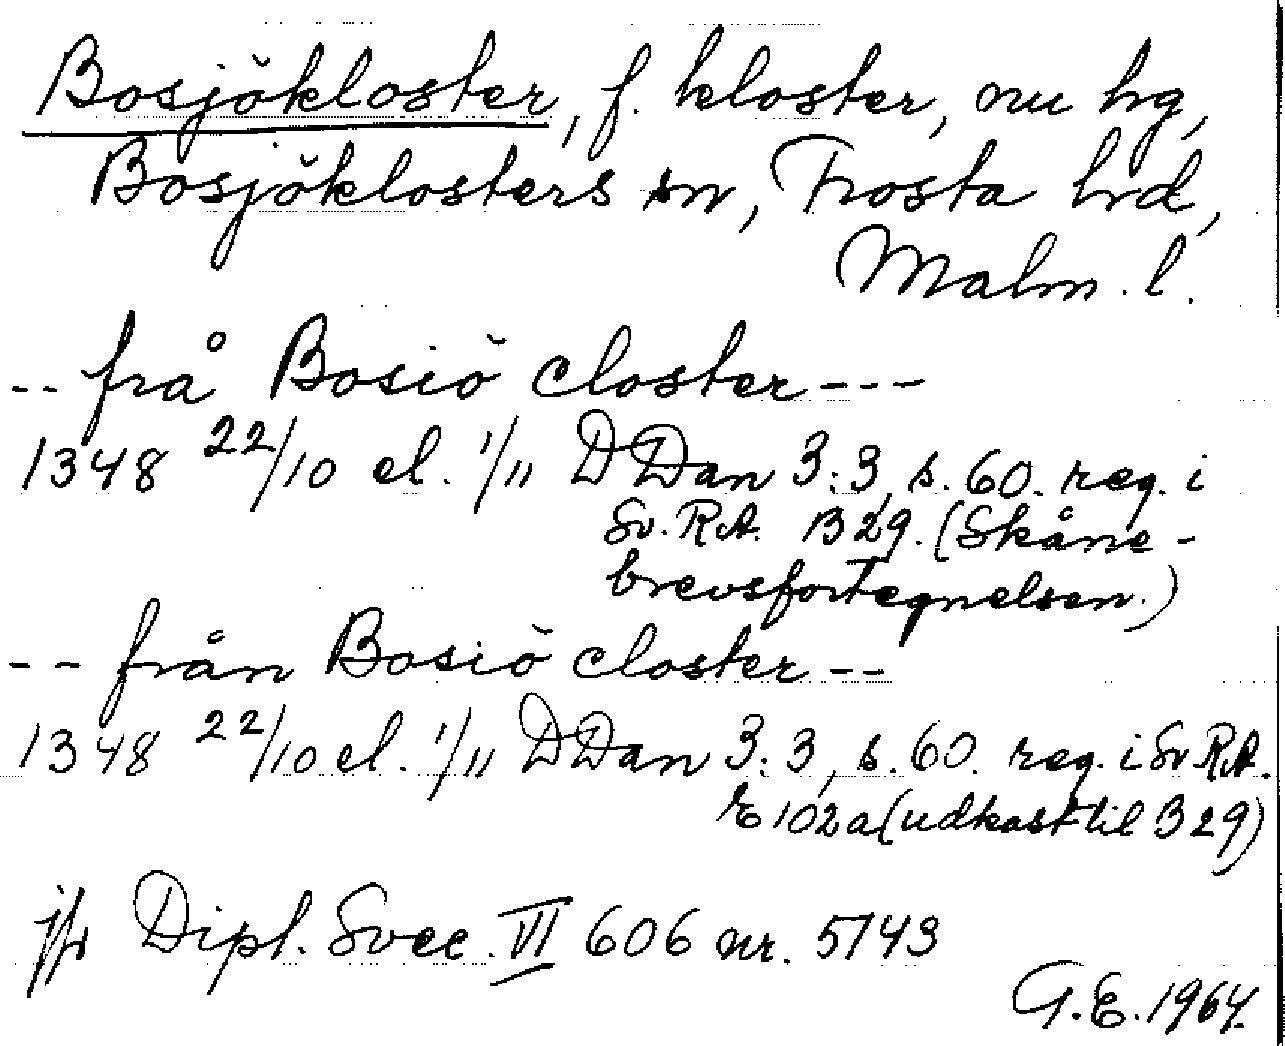 Bosjökloster, f. kloster, nu hg,
Bosjöklosters sn, Frosta hd,
Malm. l.
-- frå Bosiö closter ---
1348 22/10 el. 1/11 DDan 3:3, s. 60. reg. i
Sv. R.A. B 29. (Skåne-
brevsfortegnelsen.)
-- från Bosiö closter --
1348 22/10 el. 1/11 DDan 3:3, s. 60. reg. i Sv. R.A.
E 102a (udkast til B 29)
jfr Dipl. Svec. VI 606 nr. 5143
G.E. 1964.